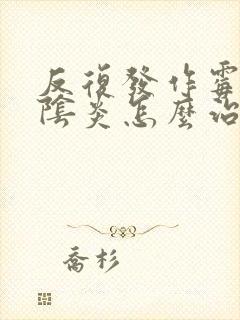 反復發作霉
陰炎怎麼治
喬杉